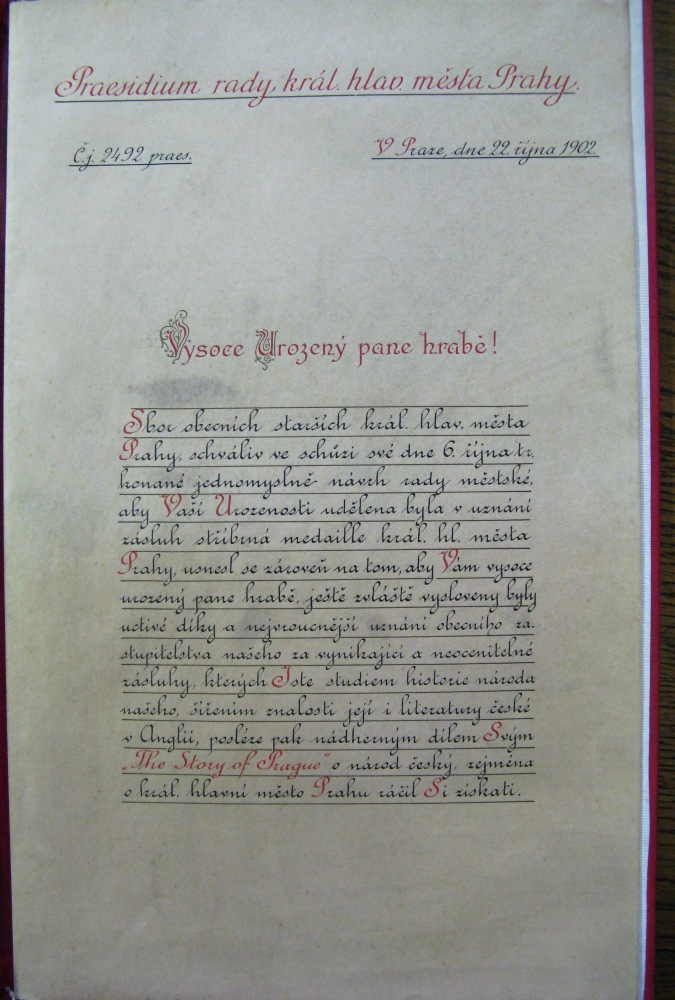 Praesidium rady král. hlav. města Prahy.
Č.j. 2492 praes.
V Praze, dne 22. října 1902.
Vysoce Urozený pane hrabě!
Sbor obecních starších král. hlav. města
Prahy, schváliv ve schůzi své dne 6. října t.r.
konané jednomyslně návrh rady městské,
aby Vaší Urozenosti udělena byla v uznání
zásluh stříbrná medaille král. hl. města
Prahy, usnesl se zároveň na tom, aby Vám vysoce
urozený pane hrabě, ještě zvláště vysloveny byly
uctivé díky a nejvroucnější uznání obecního za-
stupitelstva našeho za vynikající a neocenitelné
zásluhy, kterých Jste studiem historie národa
našeho, šířením znalosti její i literatury české
v Anglii, posléze pak nádherným dílem Svým
„The Story of Prague" o národ český, zejména
o král. hlavní město Prahu ráčil Si získati.